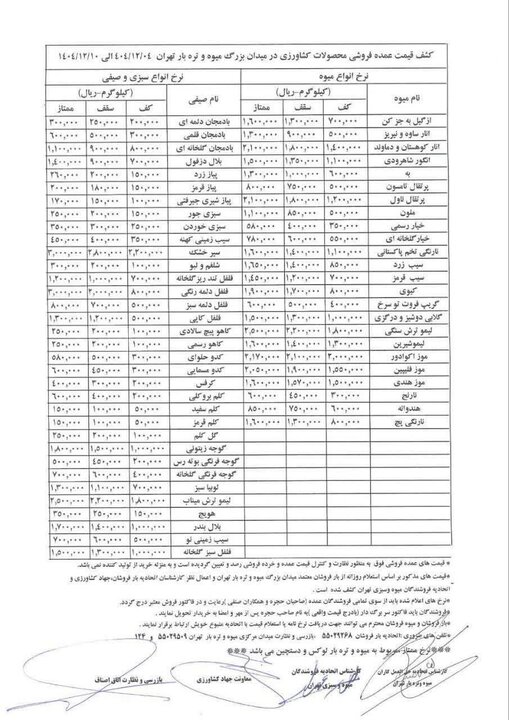 کشف قیمت عمده فروشی محصولات کشاورزی در میدان بزرگ میوه و تره بار تهران ۴۰۴/۱۲/۰۴ الی ۱۴۰۴/۱۲/۱۰
نرخ انواع میوه نرخ انواع سبزی و صیفی
(کیلوگرم-ریال) (کیلوگرم-ریال)
نام میوه کف سقف ممتاز نام صیفی کف سقف ممتاز
ازگیل به جز کن ۷۰۰,۰۰۰ ۱,۳۰۰,۰۰۰ ۱,۶۰۰,۰۰۰ بادمجان دلمه ای ۲۰۰,۰۰۰ ۲۵۰,۰۰۰ ۳۰۰,۰۰۰
انار ساوه و نیریز ۵۰۰,۰۰۰ ۹۰۰,۰۰۰ ۱,۳۰۰,۰۰۰ بادمجان قلمی ۳۰۰,۰۰۰ ۵۰۰,۰۰۰ ۶۰۰,۰۰۰
انار کوهستان و دماوند ۱,۴۰۰,۰۰۰ ۱,۸۰۰,۰۰۰ ۲,۱۰۰,۰۰۰ بادمجان گلخانه ای ۸۰۰,۰۰۰ ۹۰۰,۰۰۰ ۱,۱۰۰,۰۰۰
انگور شاهرودی ۱,۱۰۰,۰۰۰ ۱,۳۵۰,۰۰۰ ۱,۵۰۰,۰۰۰ بلال دزفول ۷۰۰,۰۰۰ ۹۰۰,۰۰۰ ۱,۴۰۰,۰۰۰
به ۶۰۰,۰۰۰ ۱,۰۰۰,۰۰۰ ۱,۳۰۰,۰۰۰ پیاز زرد ۱۵۰,۰۰۰ ۲۰۰,۰۰۰ ۲۶۰,۰۰۰
پرتقال تامسون ۵۰۰,۰۰۰ ۷۵۰,۰۰۰ ۸۰۰,۰۰۰ پیاز قرمز ۱۵۰,۰۰۰ ۱۸۰,۰۰۰ ۲۰۰,۰۰۰
پرتقال ناول ۱,۲۰۰,۰۰۰ ۱,۸۰۰,۰۰۰ ۲,۱۰۰,۰۰۰ پیاز شیری جیرفتی ۱۰۰,۰۰۰ ۱۵۰,۰۰۰ ۱۷۰,۰۰۰
ملون ۵۰۰,۰۰۰ ۸۵۰,۰۰۰ ۱,۱۰۰,۰۰۰ سبزی جور ۱۵۰,۰۰۰ ۲۰۰,۰۰۰ ۲۵۰,۰۰۰
خیار رسمی ۳۵۰,۰۰۰ ۴۰۰,۰۰۰ ۵۸۰,۰۰۰ سبزی خوردن ۲۵۰,۰۰۰ ۳۰۰,۰۰۰ ۳۵۰,۰۰۰
خیار گلخانه ای ۵۵۰,۰۰۰ ۶۰۰,۰۰۰ ۷۸۰,۰۰۰ سیب زمینی کهنه ۳۵۰,۰۰۰ ۴۰۰,۰۰۰ ۴۵۰,۰۰۰
نارنگی تخم پاکستانی ۱,۱۰۰,۰۰۰ ۱,۴۰۰,۰۰۰ ۱,۶۰۰,۰۰۰ سیر خشک ۲,۲۰۰,۰۰۰ ۲,۸۰۰,۰۰۰ ۳,۰۰۰,۰۰۰
سیب زرد ۸۵۰,۰۰۰ ۱,۴۰۰,۰۰۰ ۱,۶۵۰,۰۰۰ شلغم و لبو ۱۰۰,۰۰۰ ۲۰۰,۰۰۰ ۳۰۰,۰۰۰
سیب قرمز ۷۰۰,۰۰۰ ۱,۴۵۰,۰۰۰ ۱,۶۰۰,۰۰۰ فلفل تند ریز گلخانه ۷۰۰,۰۰۰ ۱,۰۰۰,۰۰۰ ۱,۲۰۰,۰۰۰
کیوی ۸۰۰,۰۰۰ ۱,۷۰۰,۰۰۰ ۱,۹۰۰,۰۰۰ فلفل دلمه رنگی ۸۰۰,۰۰۰ ۲,۰۰۰,۰۰۰ ۳,۰۰۰,۰۰۰
گریپ فروت تو سرخ ۴۰۰,۰۰۰ ۵۰۰,۰۰۰ ۶۰۰,۰۰۰ فلفل دلمه سبز ۵۰۰,۰۰۰ ۷۰۰,۰۰۰ ۸۰۰,۰۰۰
گلابی دوشیز و درگزی ۱,۰۰۰,۰۰۰ ۱,۳۰۰,۰۰۰ ۱,۵۰۰,۰۰۰ فلفل کاپی ۵۰۰,۰۰۰ ۱,۲۰۰,۰۰۰ ۱,۳۰۰,۰۰۰
لیمو ترش سنگی ۱,۸۰۰,۰۰۰ ۲,۲۰۰,۰۰۰ ۲,۵۰۰,۰۰۰ کاهو پیچ سالادی ۱۰۰,۰۰۰ ۲۰۰,۰۰۰ ۲۵۰,۰۰۰
لیموشیرین ۱,۳۰۰,۰۰۰ ۱,۴۰۰,۰۰۰ ۱,۶۰۰,۰۰۰ کاهو رسمی ۱۰۰,۰۰۰ ۲۰۰,۰۰۰ ۲۵۰,۰۰۰
موز اکوادور ۲,۰۰۰,۰۰۰ ۲,۱۰۰,۰۰۰ ۲,۱۷۰,۰۰۰ کدو حلوای ۳۰۰,۰۰۰ ۵۰۰,۰۰۰ ۵۸۰,۰۰۰
موز فلیپین ۱,۵۵۰,۰۰۰ ۱,۹۰۰,۰۰۰ ۲,۰۵۰,۰۰۰ کدو مسمایی ۳۰۰,۰۰۰ ۴۰۰,۰۰۰ ۶۰۰,۰۰۰
موز هندی ۱,۵۰۰,۰۰۰ ۱,۵۷۰,۰۰۰ ۱,۶۰۰,۰۰۰ کرفس ۲۰۰,۰۰۰ ۳۰۰,۰۰۰ ۴۰۰,۰۰۰
نارنج ۳۰۰,۰۰۰ ۴۵۰,۰۰۰ ۶۰۰,۰۰۰ کلم بروکلی ۲۰۰,۰۰۰ ۴۰۰,۰۰۰ ۶۰۰,۰۰۰
هندوانه ۶۰۰,۰۰۰ ۷۵۰,۰۰۰ ۸۵۰,۰۰۰ کلم سفید ۵۰,۰۰۰ ۱۰۰,۰۰۰ ۱۵۰,۰۰۰
نارنگی پیج ۸۰۰,۰۰۰ ۱,۳۰۰,۰۰۰ ۱,۶۰۰,۰۰۰ کلم قرمز ۵۰,۰۰۰ ۱۰۰,۰۰۰ ۱۵۰,۰۰۰
گل کلم ۱۰۰,۰۰۰ ۲۰۰,۰۰۰ ۲۵۰,۰۰۰
گوجه زیتونی ۱,۰۰۰,۰۰۰ ۱,۵۰۰,۰۰۰ ۱,۸۰۰,۰۰۰
گوجه فرنگی بوته رس ۲۰۰,۰۰۰ ۴۵۰,۰۰۰ ۵۰۰,۰۰۰
گوجه فرنگی گلخانه ۴۰۰,۰۰۰ ۶۰۰,۰۰۰ ۷۰۰,۰۰۰
لوبیا سبز ۷۰۰,۰۰۰ ۱,۱۰۰,۰۰۰ ۱,۳۰۰,۰۰۰
لیمو ترش میناب ۱,۸۰۰,۰۰۰ ۲,۲۰۰,۰۰۰ ۲,۵۰۰,۰۰۰
هویج ۱۵۰,۰۰۰ ۲۵۰,۰۰۰ ۳۵۰,۰۰۰
بلال بندر ۱,۰۰۰,۰۰۰ ۱,۴۰۰,۰۰۰ ۱,۷۰۰,۰۰۰
سیب زمینی نو ۵۰۰,۰۰۰ ۶۰۰,۰۰۰ ۷۰۰,۰۰۰
فلفل سبز گلخانه ۱,۰۰۰,۰۰۰ ۱,۳۰۰,۰۰۰ ۱,۵۰۰,۰۰۰
* قیمت های عمده فروشی فوق به منظور نظارت و کنترل قیمت عمده و خرده فروشی رصد و تعیین گردیده است و به منزله خرید از تولید کننده نمی باشد.
*قیمت های مذکور بر اساس استعلام روزانه از بار فروشان معتمد میدان بزرگ میوه و تره بار تهران و اعمال نظر کارشناسان اتحادیه بار فروشان، جهاد کشاورزی و
اتحادیه فروشندگان میوه وسبزی تهران کشف شده است.
*نرخ های اعلام شده باید از سوی تمامی فروشندگان عمده (صاحبان حجره و همکاران صنفی) رعایت و در فاکتور فروش معتبر درج گردد.
*فروشندگان باید فاکتور سر برگ دار (بادرج قیمت واقعی) به نام صاحب حجره پس از مهر و امضا به خریدار تحویل نمایند.
*بارفروشان و میوه فروشان محترم می توانند جهت دریافت نرخ نامه یا استعلام قیمت با اتحادیه متبوع خویش ارتباط برقرار نمایند.
*تلفن های ضروری: اتحادیه بار فروشان ۵۵۰۴۹۲۶۸ بازرسی و نظارت میدان مرکزی میوه و تره بار تهران ۵۵۰۲۹۵۰۹ و ۱۲۴
***نرخ ممتاز مربوط به میوه و تره بار لوکس و دستچین می باشد***
کارشناس اتحادیه حق العمل کاران کارشناس اتحادیه فروشندگان معاونت جهاد کشاورزی بازرسی و نظارت اتاق اصناف
میوه و تره بار تهران میوه و سبزی تهران